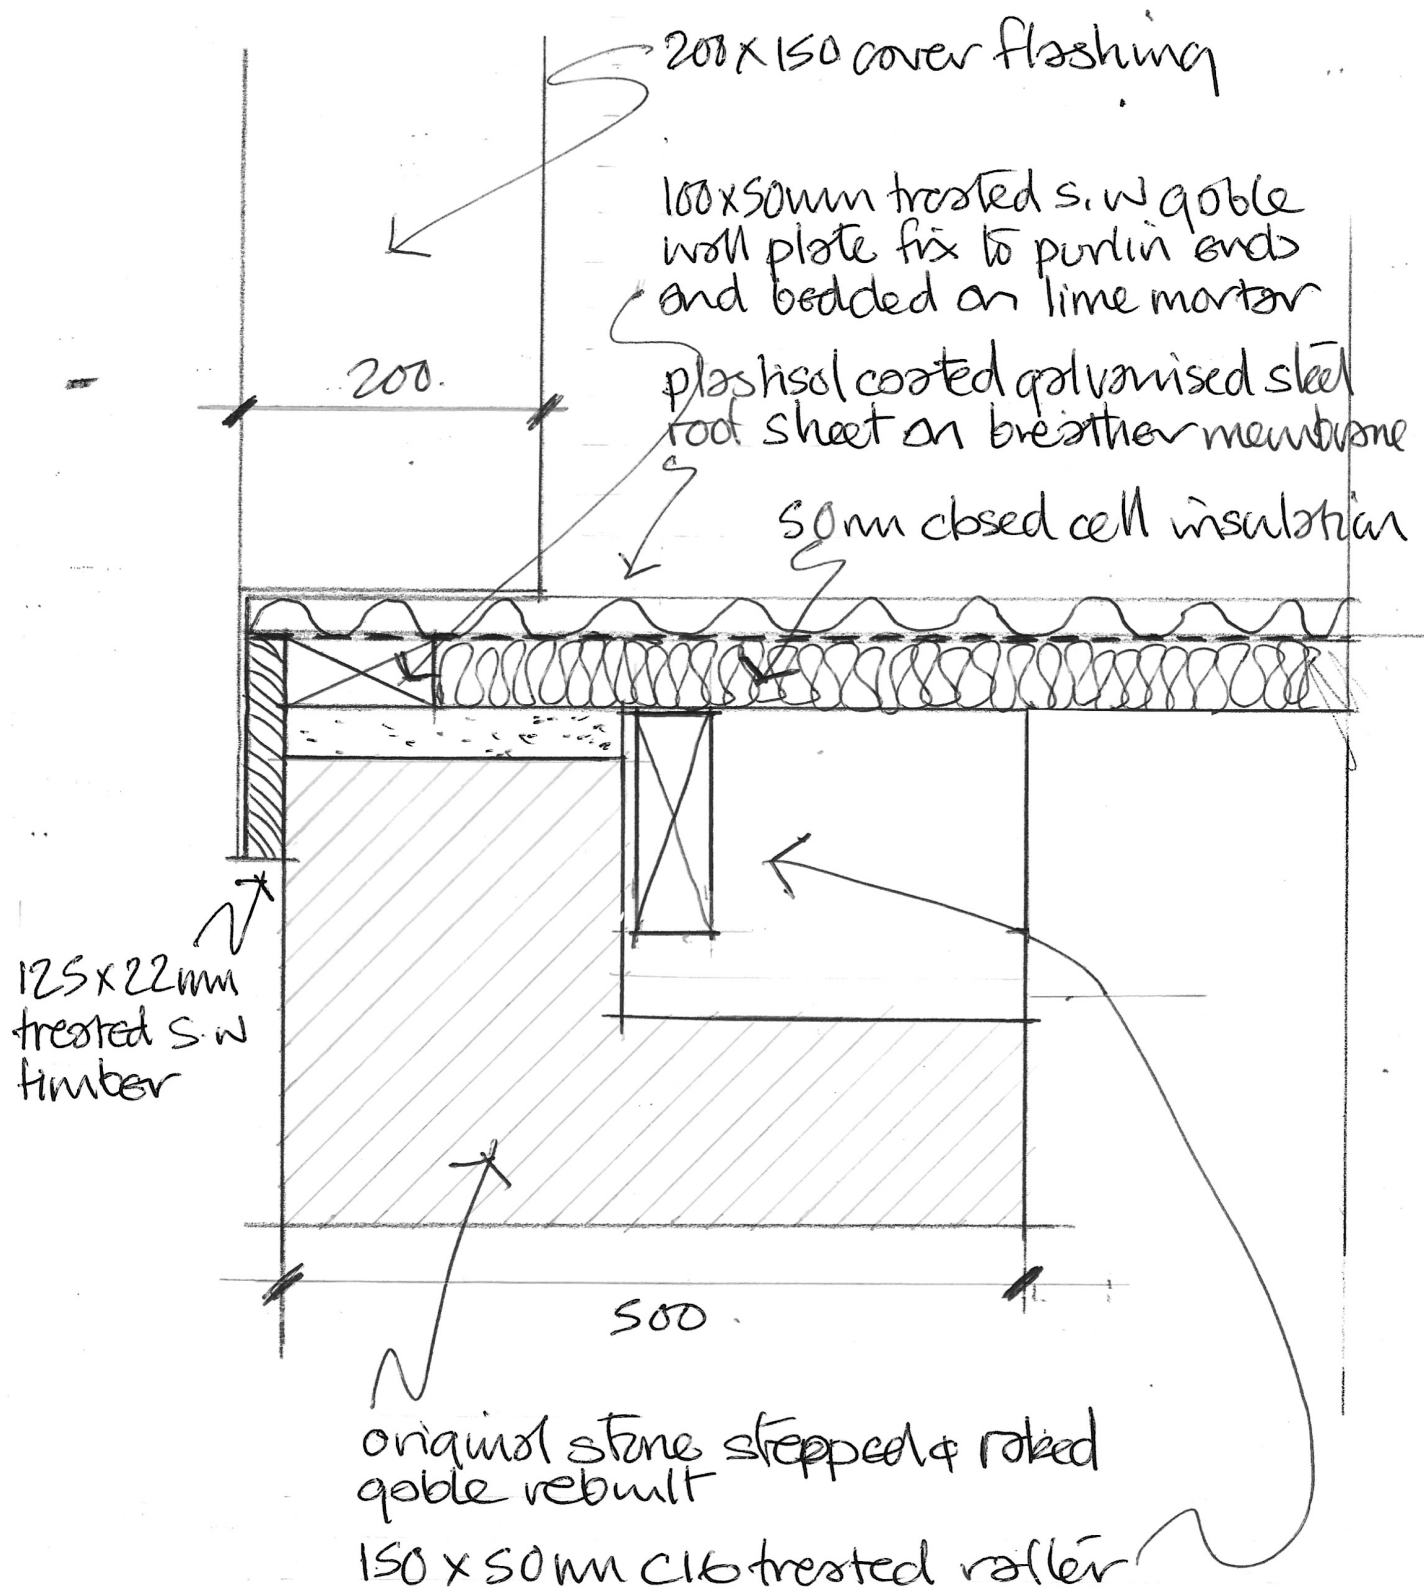 200 x 150 cover flashing
100x50mm treated s.w gable
wall plate fix to purlin ends
and bedded on lime mortar
200.
plastisol coated galvanised steel
roof sheet on breather membrane
50mm closed cell insulation
125x22mm
treated s.w
timber
500
original stone stepped & raked
gable rebuilt
150 x 50mm C16 treated rafter